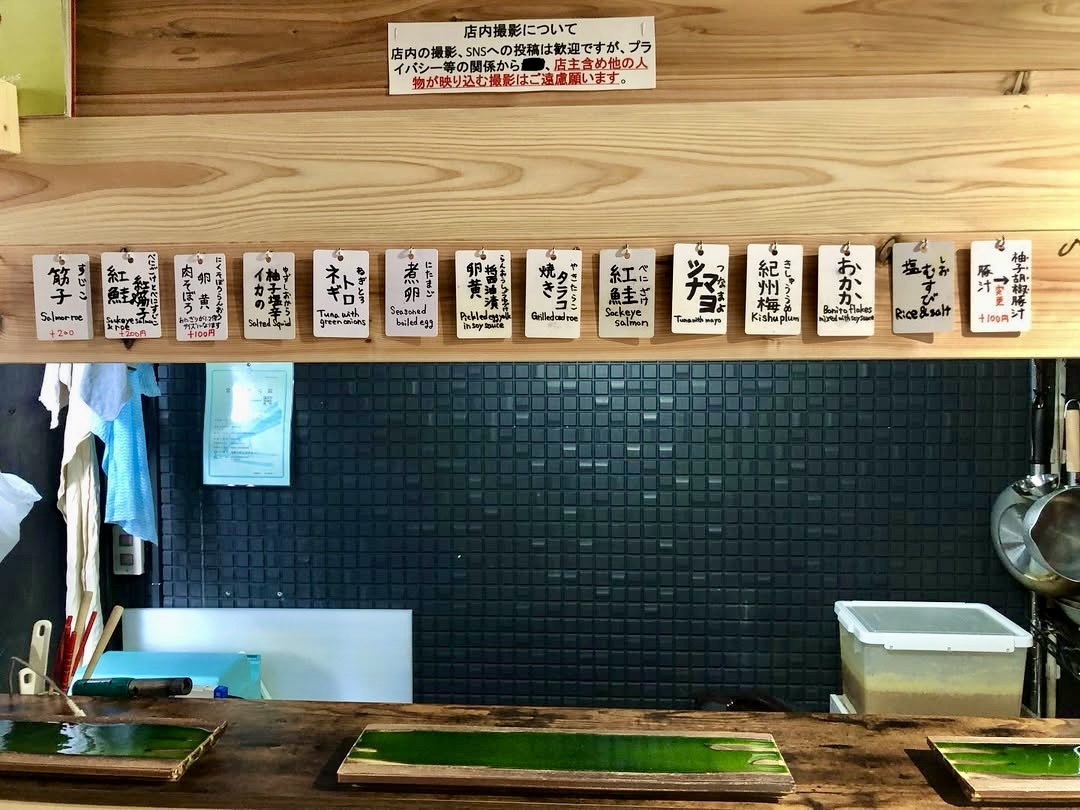 店内撮影について
店内の撮影、SNSへの投稿は歓迎ですが、プラ
イバシー等の関係から、店主含め他の人
物が映り込む撮影はご遠慮願います。
すじこ
筋子
Salmon roe
+200
紅鮭
紅筋子
Sockeye salmon
& roe
+200円
卵黄
肉そぼろ
+100円
柚子塩辛
イカの
Salted Squid
ねぎとろ
トロ
ネギ
Tuna with
green onions
にたまご
煮卵
Seasoned
boiled egg
醤油漬
卵黄
Pickled egg yolk
in soy sauce
やきたらこ
タラコ
焼き
Grilled cod roe
べにざけ
紅鮭
Sockeye
salmon
つなまよ
ツナ
マヨ
Tuna with mayo
きしゅううめ
紀州梅
Kishu plum
おかか
Bonito flakes
mixed with soy sauce
しお
塩むすび
Rice & salt
柚子胡椒豚汁
→
変更
豚汁
+100円